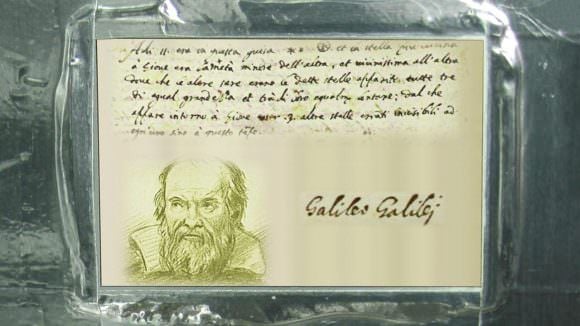 Adi 11. era in questa guisa ** et la stella più vicina
à Giove era la metà minore dell'altra, et vicinissima all'altra
dove che le altre sere erano le dette stelle apparite tutte tre
di egual grandezza et trà di loro egualm. lontane; dal che
appare intorno à Giove esser .3. altre stelle erranti invisibili ad
ogni uno sino à questo tempo.
Galileo Galilej